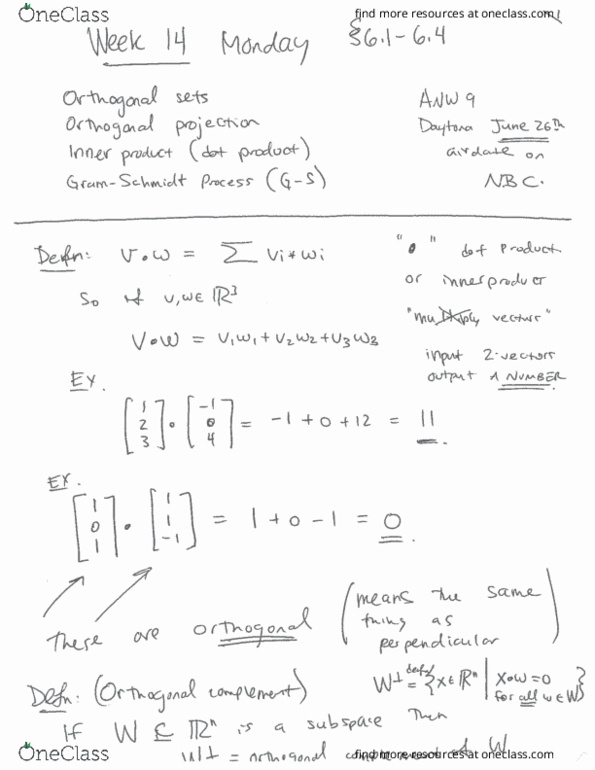 OneClass
find more resources at oneclass.com
Week 14 Monday §6.1-6.4
Orthogonal sets
Orthogonal projection
Inner product (dot product)
Gram-Schmidt Process (G-S)
ANW 9
Daytona June 26th
airdate on
NBC.
Defn: V • W = Σ Vi * Wi
So if v, w ∈ ℝ³
V • W = V₁W₁ + V₂W₂ + V₃W₃
" • " dot product
or inner product
"multiply vectors"
input 2-vectors
output A NUMBER
EX.
[1 2 3] • [-1 0 4] = -1 + 0 + 12 = 11.
EX.
[1 0 1] • [1 1 -1] = 1 + 0 - 1 = 0.
These are orthogonal
(means the same
thing as
perpendicular)
Defn: (Orthogonal complement)
W⊥ = {x ∈ ℝⁿ | x • w = 0
for all w ∈ W}
If W ⊆ ℝⁿ is a subspace then
W⊥ = orthogonal W
OneClass
find more resources at oneclass.com